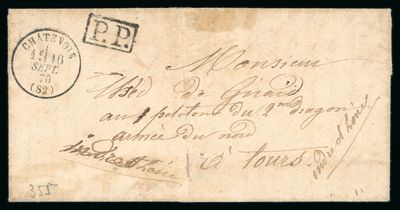 CHATENOIS
16
SEPT.
70
(82)
P.P.
Monsieur
de Girard
au 1 peloton du 2me dragons
armée du nord
à tours
indre et loire
355